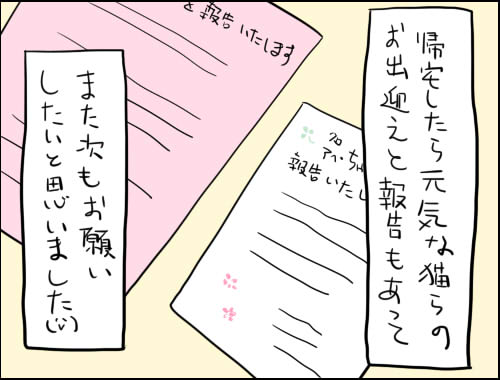 帰宅したら元気な猫らの
お出迎えと報告もあって
と報告いたします
クロ
アベちゃ
報告いたし
また次もお願い
したいと思いました(ˊᵕˋ)